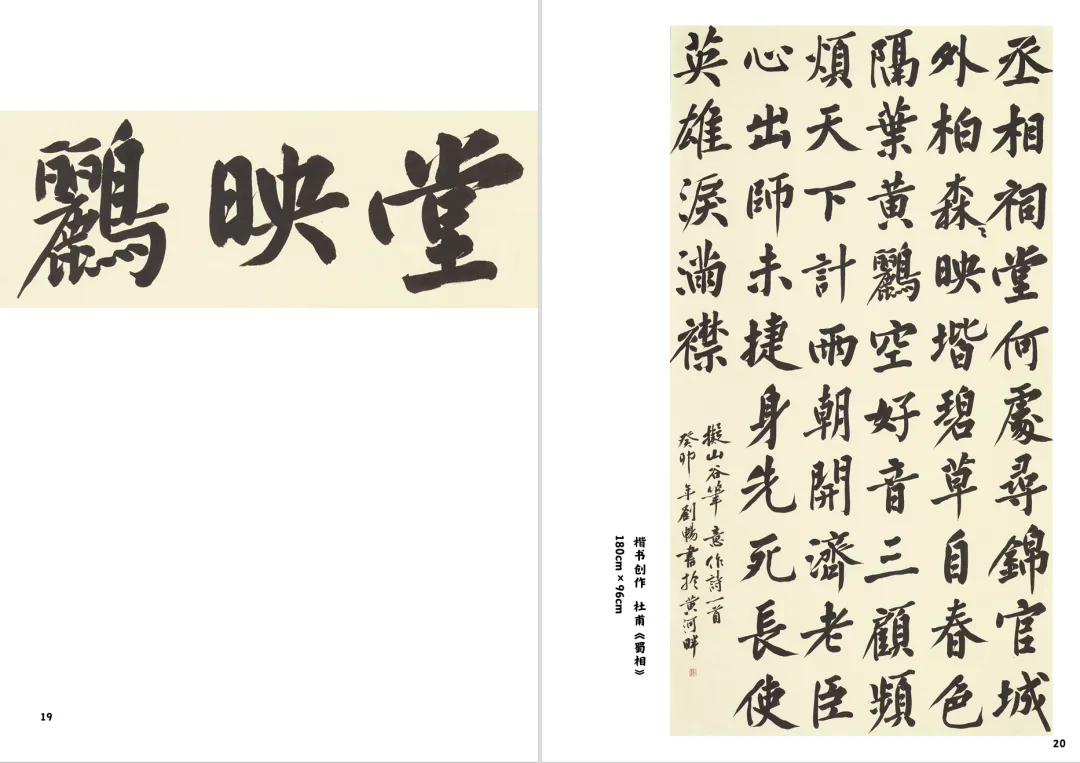 堂映鸝
19
丞相祠堂何處尋錦官城
外柏森〻映堦碧草自春色
隔葉黃鸝空好音三顧頻
煩天下計兩朝開濟老臣
心出師未捷身先死長使
英雄淚滿襟
擬山谷筆意作詩一首
癸卯年劉暢書於黃河畔
楷书创作 杜甫《蜀相》
180cm×96cm
20